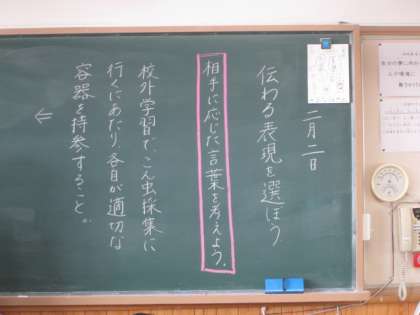 二月二日
伝わる表現を選ぼう
相手に応じた言葉を考えよう。
校外学習で、こん虫採集に
行くにあたり、各自が適切な
容器を持参すること。
←